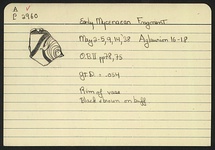 A
P 2960
Early Mycenaean Fragment
May 2-5, 9, 14, '38
16-18
O.E. II pp 78, 75
gr. D = .054
Rim of vase
Black & brown on buff